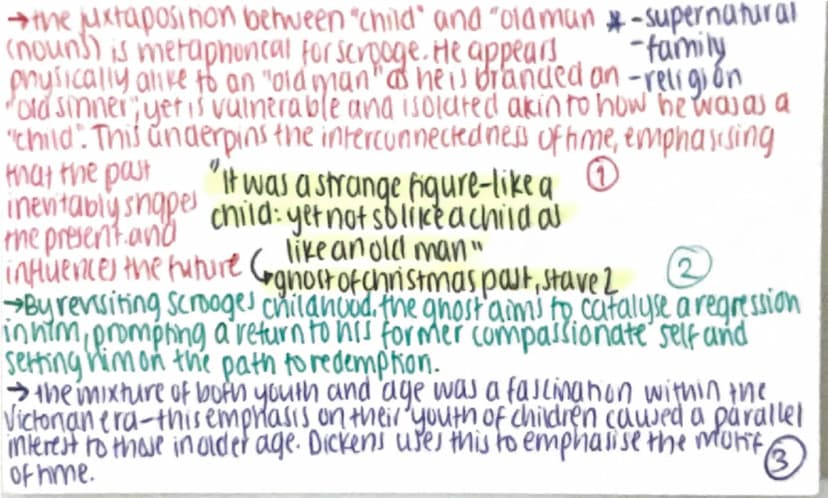 →the juxtaposition between "child" and "old man
(nouns) is metaphorical for scrooge. He appears
physically alike to an "old man" as he is branded an
"old sinner", yet is vulnerable and isolated akin to how he was as a
"child". This underpins the interconnectedness of time, emphasising
that the past
inevitably shapes
the present and
influences the future
* -supernatural
-family
-religion
"It was a strange figure-like a
child: yet not so like a child as
like an old man"
ghost of christmas past, stave 2
①
②
→By revisiting scrooges childhood, the ghost aims to catalyse a regression
in him, prompting a return to his former compassionate self and
setting him on the path to redemption.
→ the mixture of both youth and age was a fascination within the
Victorian era-this emphasis on their youth of children caused a parallel
interest to those in older age. Dickens uses this to emphasise the motif
of time.
③